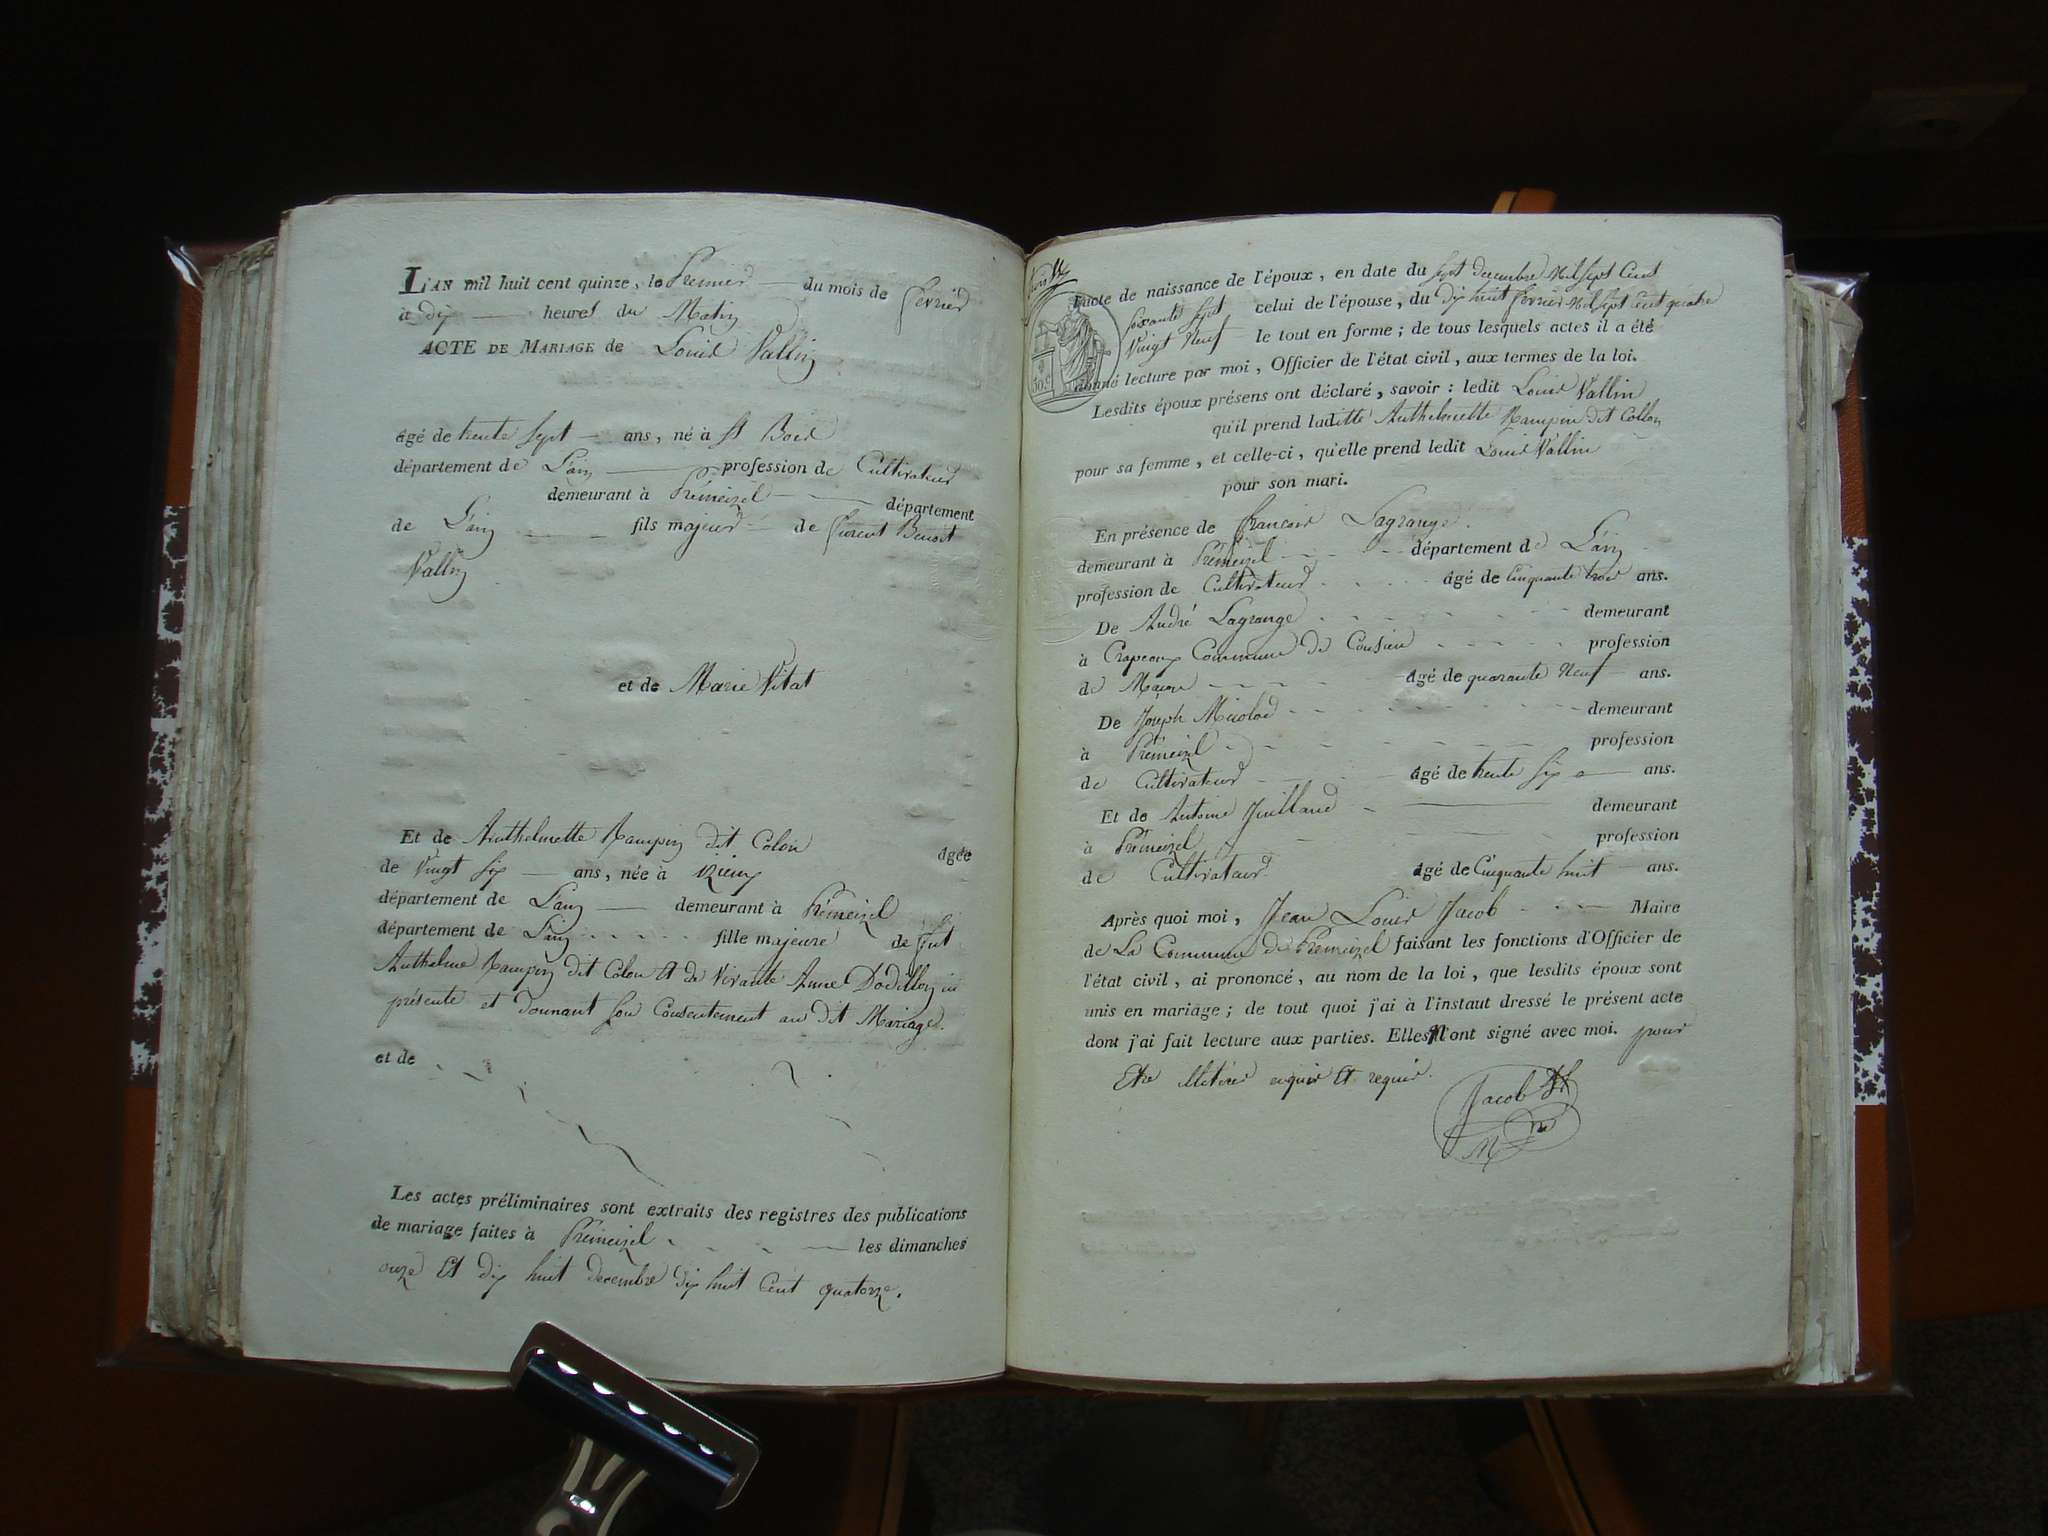 L'AN mil huit cent quinze, le Premier du mois de fevrier
à dix heures du Matin
ACTE DE MARIAGE de Louis Vallin
âgé de trente sept ans, né à St Bois
département de L'ain profession de Cultivateur
demeurant à Prémeizel département
de L'ain fils majeur de Benoit
Vallin
et de Marie Vitat
Et de Anthelmette Rampin dit Colon âgée
de Vingt six ans, née à izieux
département de L'ain demeurant à Prémeizel
département de L'ain fille majeure de fut
Anthelme Rampin dit Colon Et de Vivante Anne Dodillon ici
présente et donnant son Consentement au dit Mariage.
et de
Les actes préliminaires sont extraits des registres des publications
de mariage faites à Prémeizel les dimanches
onze Et dix huit decembre dix huit Cent quatorze.
l'acte de naissance de l'époux, en date du sept decembre Mil Sept Cent
soixante sept celui de l'épouse, du dix huit fevrier Mil Sept Cent quatre
Vingt Neuf le tout en forme; de tous lesquels actes il a été
donné lecture par moi, Officier de l'état civil, aux termes de la loi.
Lesdits époux présens ont déclaré, savoir: ledit Louis Vallin
qu'il prend laditte Anthelmette Rampin dit Collon
pour sa femme, et celle-ci, qu'elle prend ledit Louis Vallin
pour son mari.
En présence de francois Lagrange.
demeurant à Prémeizel département de L'ain
profession de Cultivateur âgé de Cinquante trois ans.
De André Lagrange demeurant
à Crapeoux Commune de Consieu profession
de Maçon âgé de quarante Neuf ans.
De Joseph Micolod demeurant
à Prémeizel profession
de Cultivateur âgé de trente six ans.
Et de Antoine Juilland demeurant
à Prémeizel profession
de Cultivateur âgé de Cinquante huit ans.
Après quoi moi, Jean Louis Jacob Maire
de La Commune de Prémeizel faisant les fonctions d'Officier de
l'état civil, ai prononcé, au nom de la loi, que lesdits époux sont
unis en mariage; de tout quoi j'ai à l'instant dressé le présent acte
dont j'ai fait lecture aux parties. Elles n'ont signé avec moi. pour
Etre illitérés enquis Et requis.
Jacob